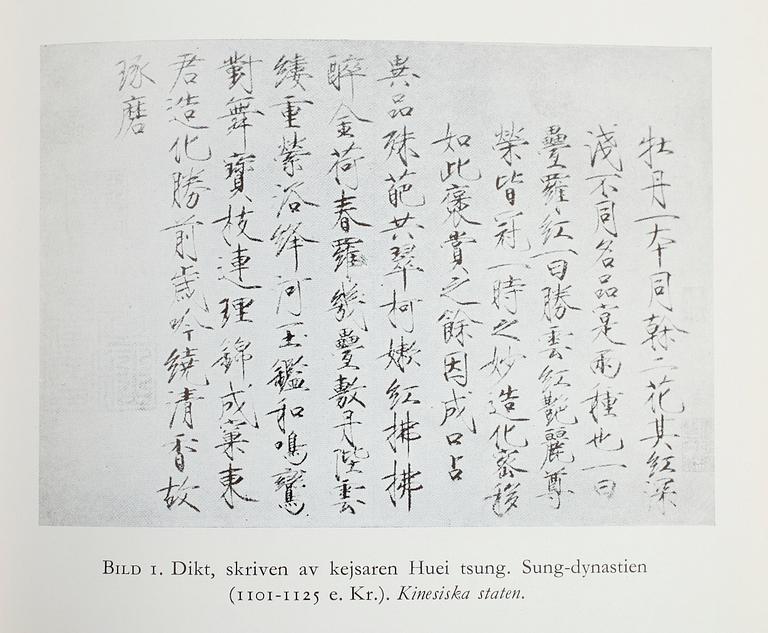 牡丹一本同榦二花其紅深
淺不同名品寔兩種也一曰
疊羅紅一曰勝雲紅艷麗尊
榮皆冠一時之妙造化密移
如此褒賞之餘因成口占
異品殊葩共翠柯嫩紅拂拂
醉金荷春羅幾疊敷丹陛雲
縷重縈浴絳河玉鑑和鳴鸞
對舞寶枝連理錦成窠東
君造化勝前歲吟繞清香故
琢磨
Bild 1. Dikt, skriven av kejsaren Huei tsung. Sung-dynastien
(1101-1125 e. Kr.). Kinesiska staten.